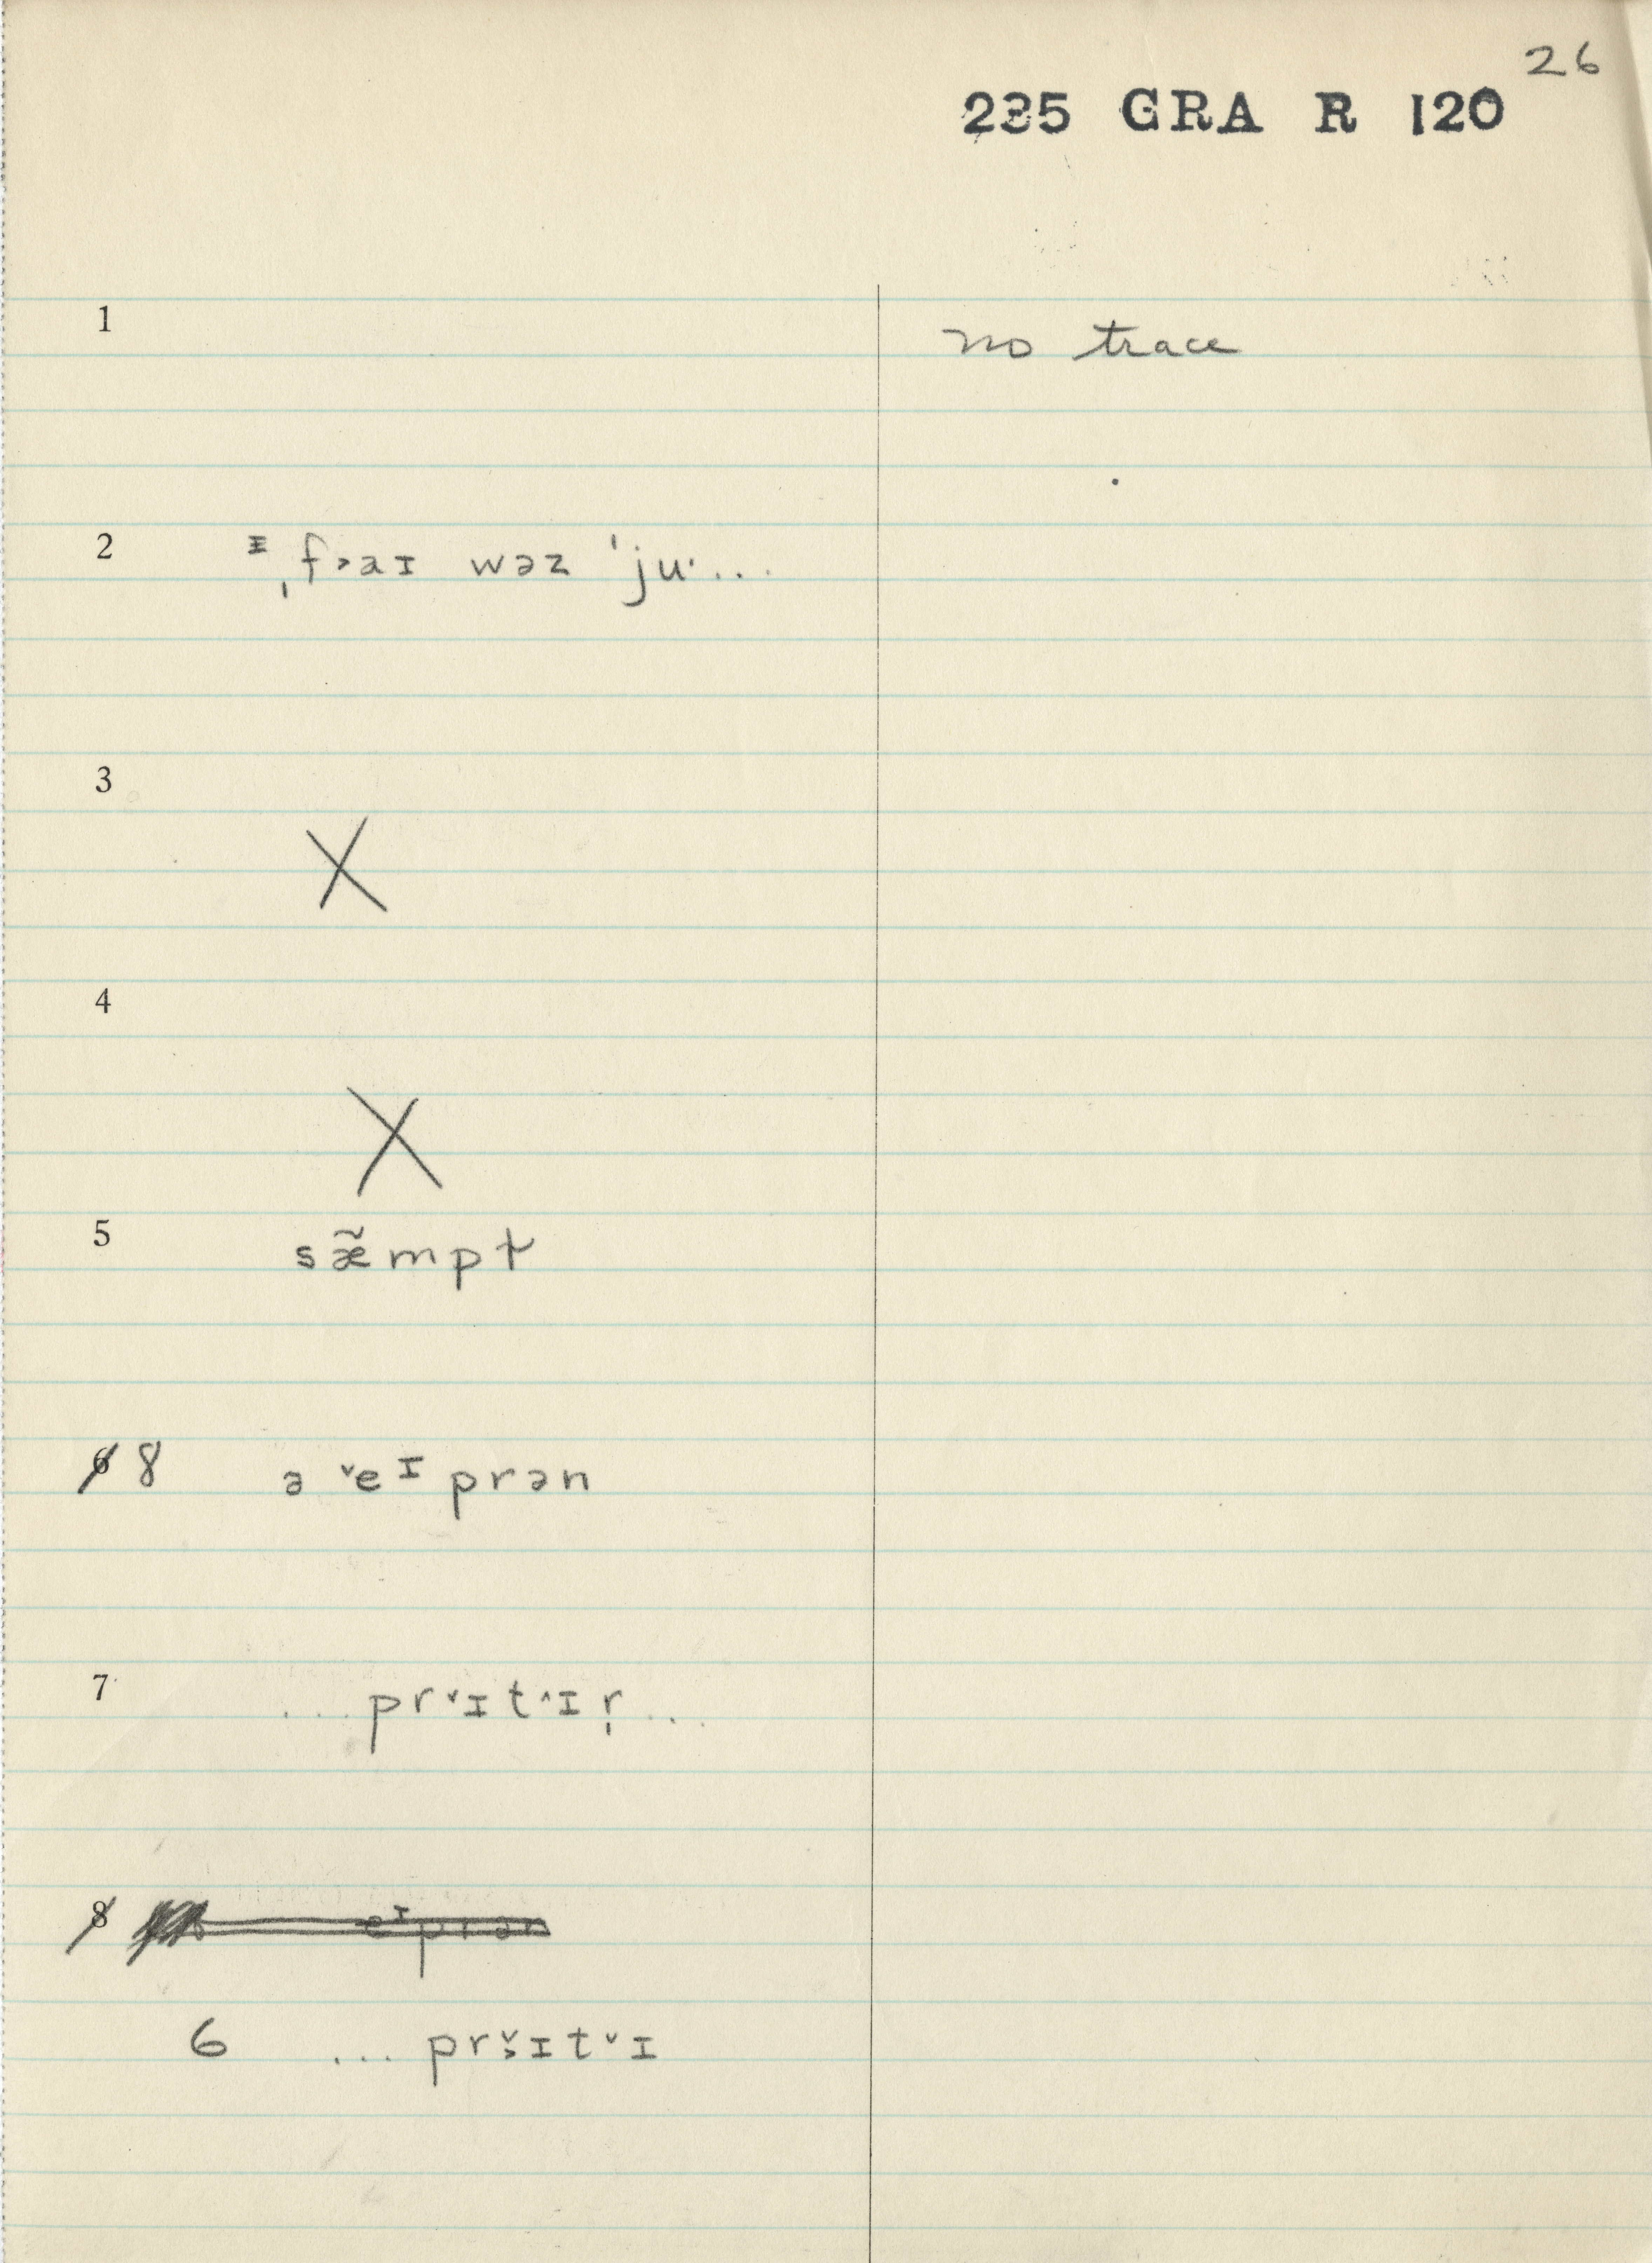 26
235 GRA R 120
1 no trace
2 ᶦ ˌf˃aɪ wəz ˈju· ...
3 X
4 X
5 sæ̃mpt
6 8 ə ˅eᶦprən
7 ... pr˅ɪt˄ɪr̩ ...
8 eᶦprən
6 ... pr˅ɪt˅ɪ